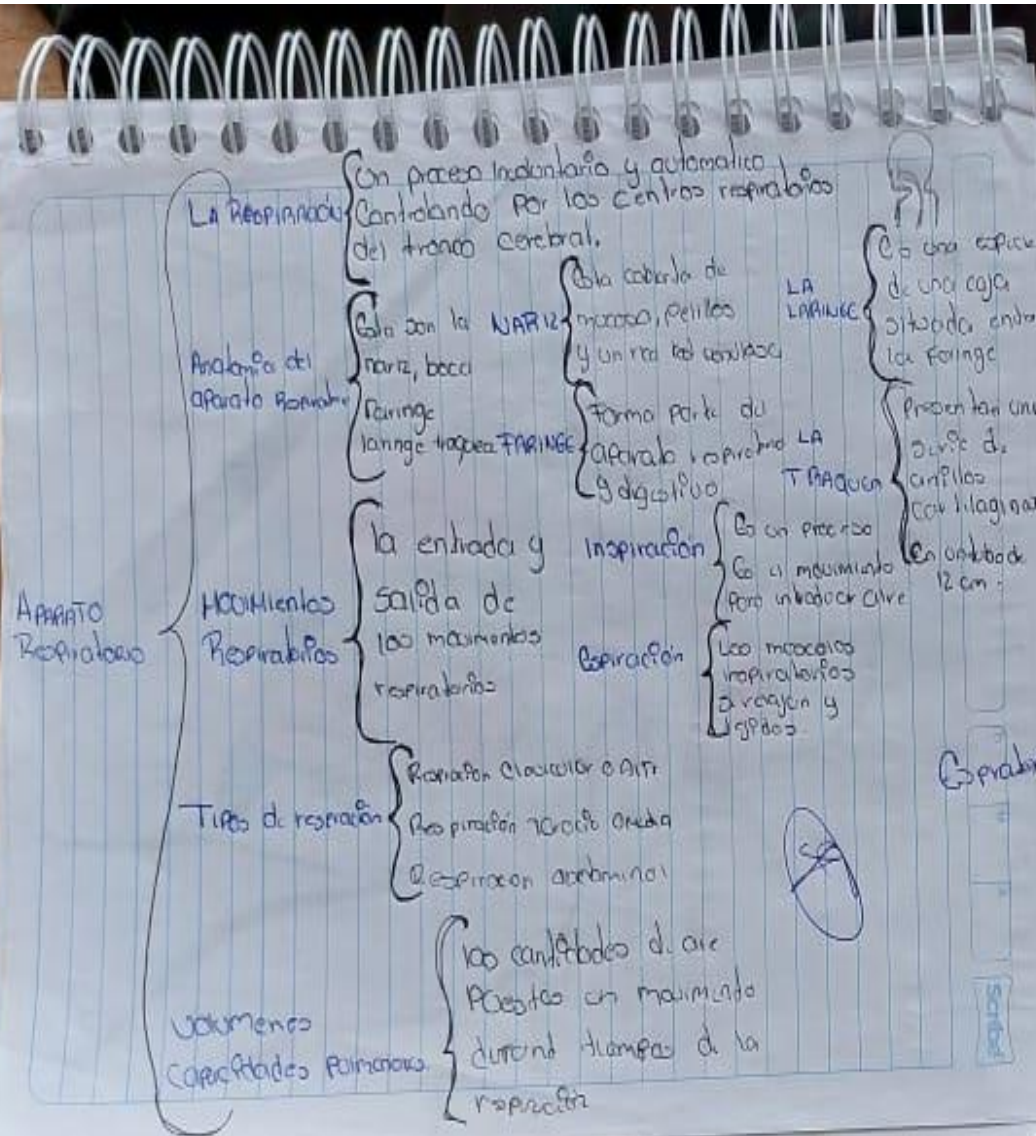 LA RESPIRACIÓN
Un proceso Involuntario y automatico
Controlando por los centros respiratorios
del tronco cerebral.
Anatomía del
aparato Respirato
Esta son la
nariz, boca
Faringe
laringe traquea
NARIZ
Esta cubierta de
mucosa, pelillos
y un red
FARINGE
Forma parte del
aparato respiratorio
y digestivo
LA
LARINGE
Es una especie
de una caja
situada entre
la Faringe
LA
TRAQUEA
Presentan una
serie de
anillos
cartilaginos
En un tubo de
12 cm.
APARATO
Respiratorio
MOVIMientos
Respiratorios
la entrada y
salida de
los movimentos
respiratorios
Inspiración
Es un proceso
Es el movimiento
para introducir aire
Espiración
Los musculos
inspiratorios
se relajan y
Tipos de respiración
Respiración Clavicular o Alta
Respiración media
Respiracon abdominal
Espirator
Volumenes
Capacitades Pulmonares
los cantidades de aire
Puestas en movimiento
la
respiración
Scribe